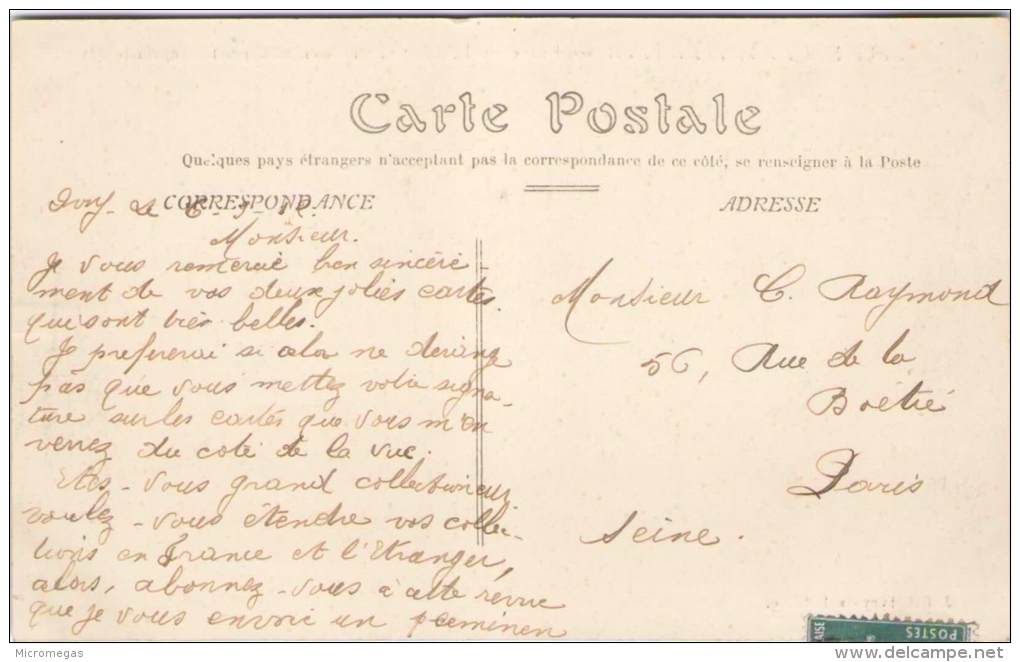 Carte Postale
Quelques pays étrangers n'acceptant pas la correspondance de ce côté, se renseigner à la Poste
CORRESPONDANCE
ADRESSE
Ivry le
Monsieur.
Je vous remercie bien sincère-
ment de vos deux jolies cartes
qui sont très belles.
Je prefererai si cela ne derange
pas que vous mettez votre signa-
ture sur les cartes que vous m'en
verrez du coté de la vue.
Etes-vous grand collectionneur
voulez-vous étendre vos collec-
tions en France et l'Etranger,
alors, abonnez-vous à cette revue
que je vous envoie un
Monsieur C. Raymond
56, Rue de la
Boëtie
Paris
Seine.
POSTES
Micromegas
delcampe.net